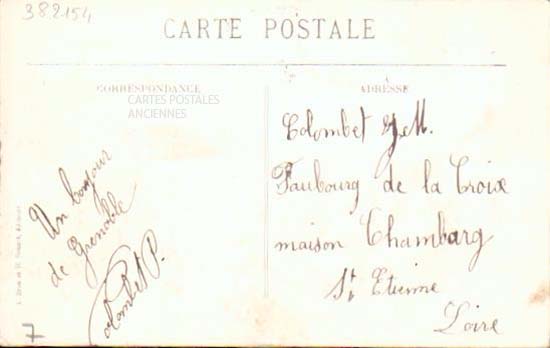 382154
CARTE POSTALE
CORRESPONDANCE
CARTES POSTALES
ANCIENNES
Un bonjour
de Grenoble
Colombet P.
7
ADRESSE
Colombet J. M.
Faubourg de la Croix
maison Chambarg
St Etienne
Loire